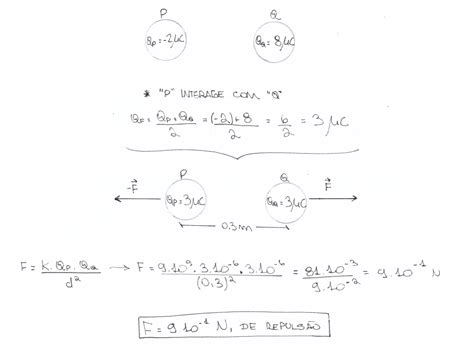 P Q
Qp = -2μC Qq = 8μC
* "P" INTERAGE COM "Q"
Qp = Qp + Qq / 2 = (-2) + 8 / 2 = 6 / 2 = 3μC
P Q
-F⃗ Qp = 3μC Qq = 3μC F⃗
0,3m
F = K . Qp . Qq / d² → F = 9.10⁹ . 3.10⁻⁶ . 3.10⁻⁶ / (0,3)² = 81.10⁻³ / 9.10⁻² = 9.10⁻¹ N
F = 9.10⁻¹ N, DE REPULSÃO